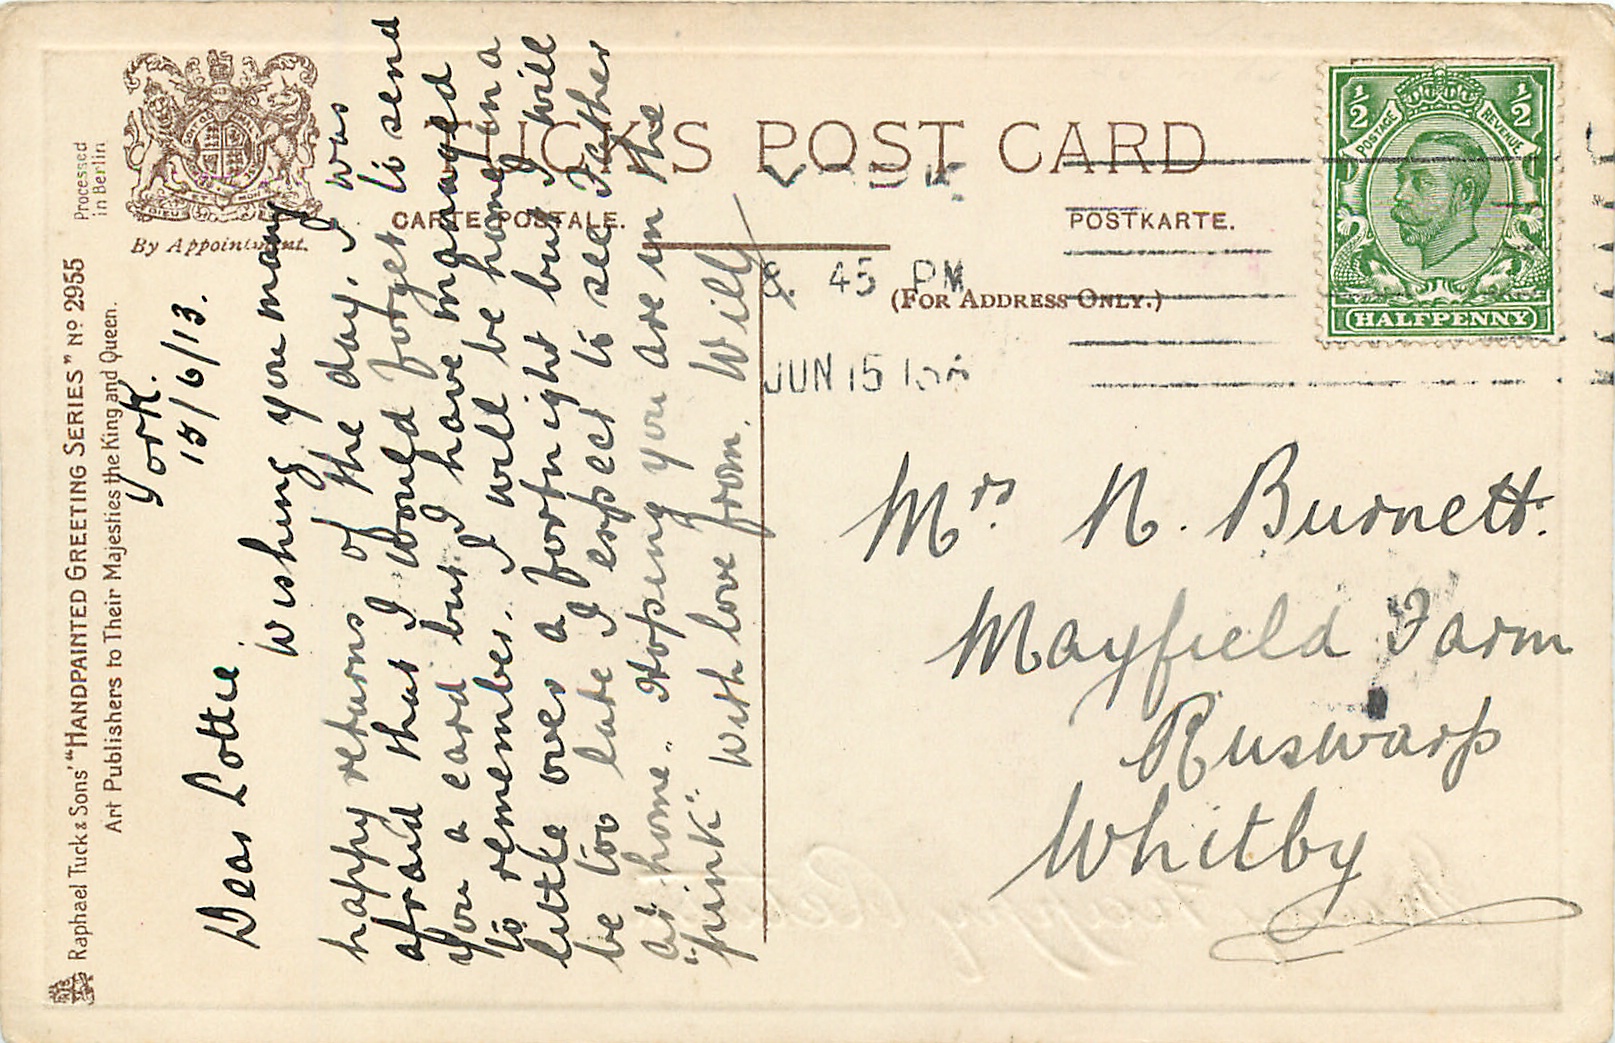 Raphael Tuck & Sons' "HANDPAINTED GREETING SERIES" Nº 2955
Art Publishers to Their Majesties the King and Queen.
Processed
in Berlin
DIEU ET MON
By Appointment.
TUCK'S POST CARD
CARTE POSTALE.
POSTKARTE.
(FOR ADDRESS ONLY.)
York.
15/6/13.
Dear Lottie
Wishing you many
happy returns of the day, I was
afraid that I would forget to send
you a card but I have managed
to remember. I will be home in a
little over a fortnight but I will
be too late I expect to see Father
at home. Hoping you are in the
"pink". With love from. Willy
YORK
8. 45 PM
JUN 15
½ ½
POSTAGE REVENUE
HALFPENNY
Mrs N. Burnett.
Mayfield Farm
Ruswarp
Whitby